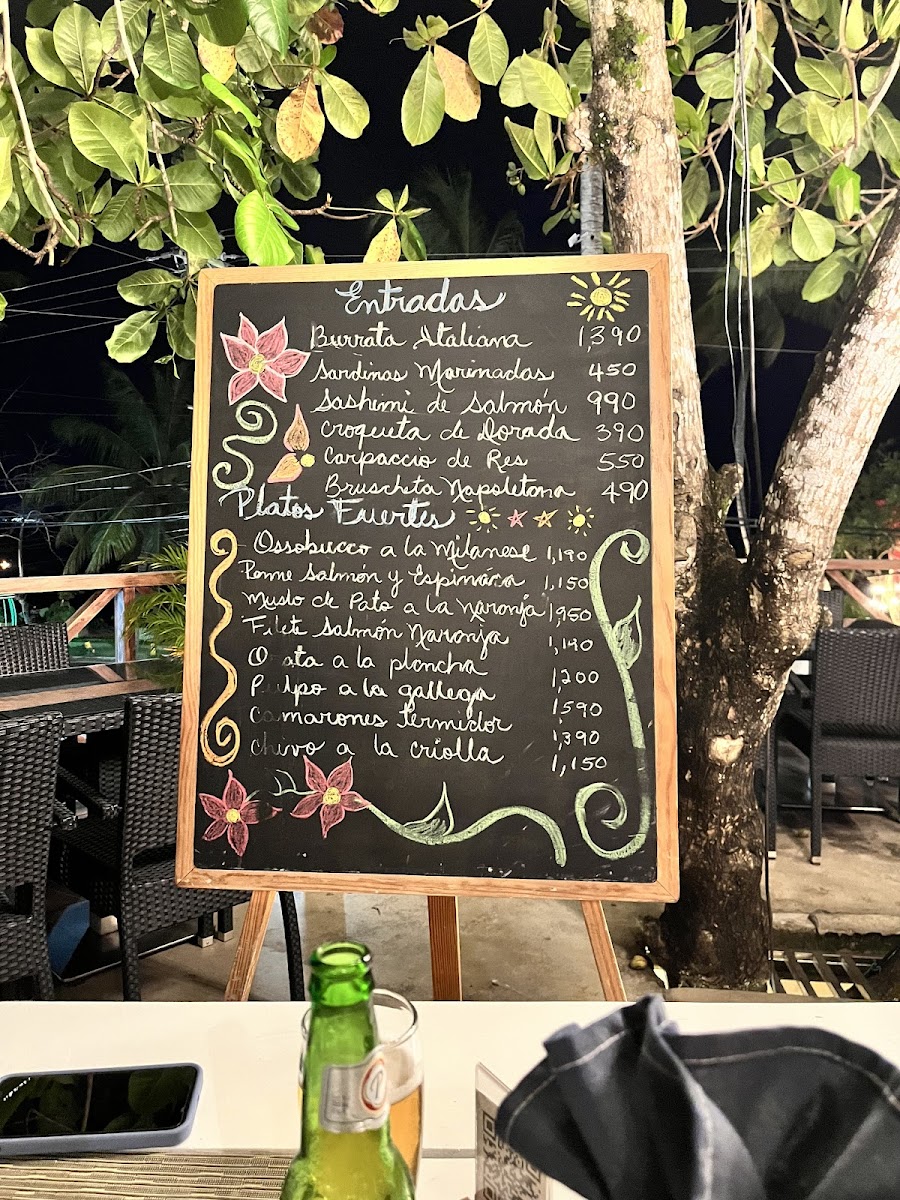 Entradas
Burrata Italiana 1,390
Sardinas Marinadas 450
Sashimi de Salmón 990
Croqueta de Dorada 390
Carpaccio de Res 550
Bruscheta Napoletana 490
Platos Fuertes
Ossobucco a la Milanese 1,190
Penne Salmón y Espinaca 1,150
Muslo de Pato a la Naranja 1,950
Filete Salmón Naranja 1,190
O ata a la plancha 1,200
Pulpo a la gallega 1590
Camarones termidor 1,390
chivo a la criolla 1,150